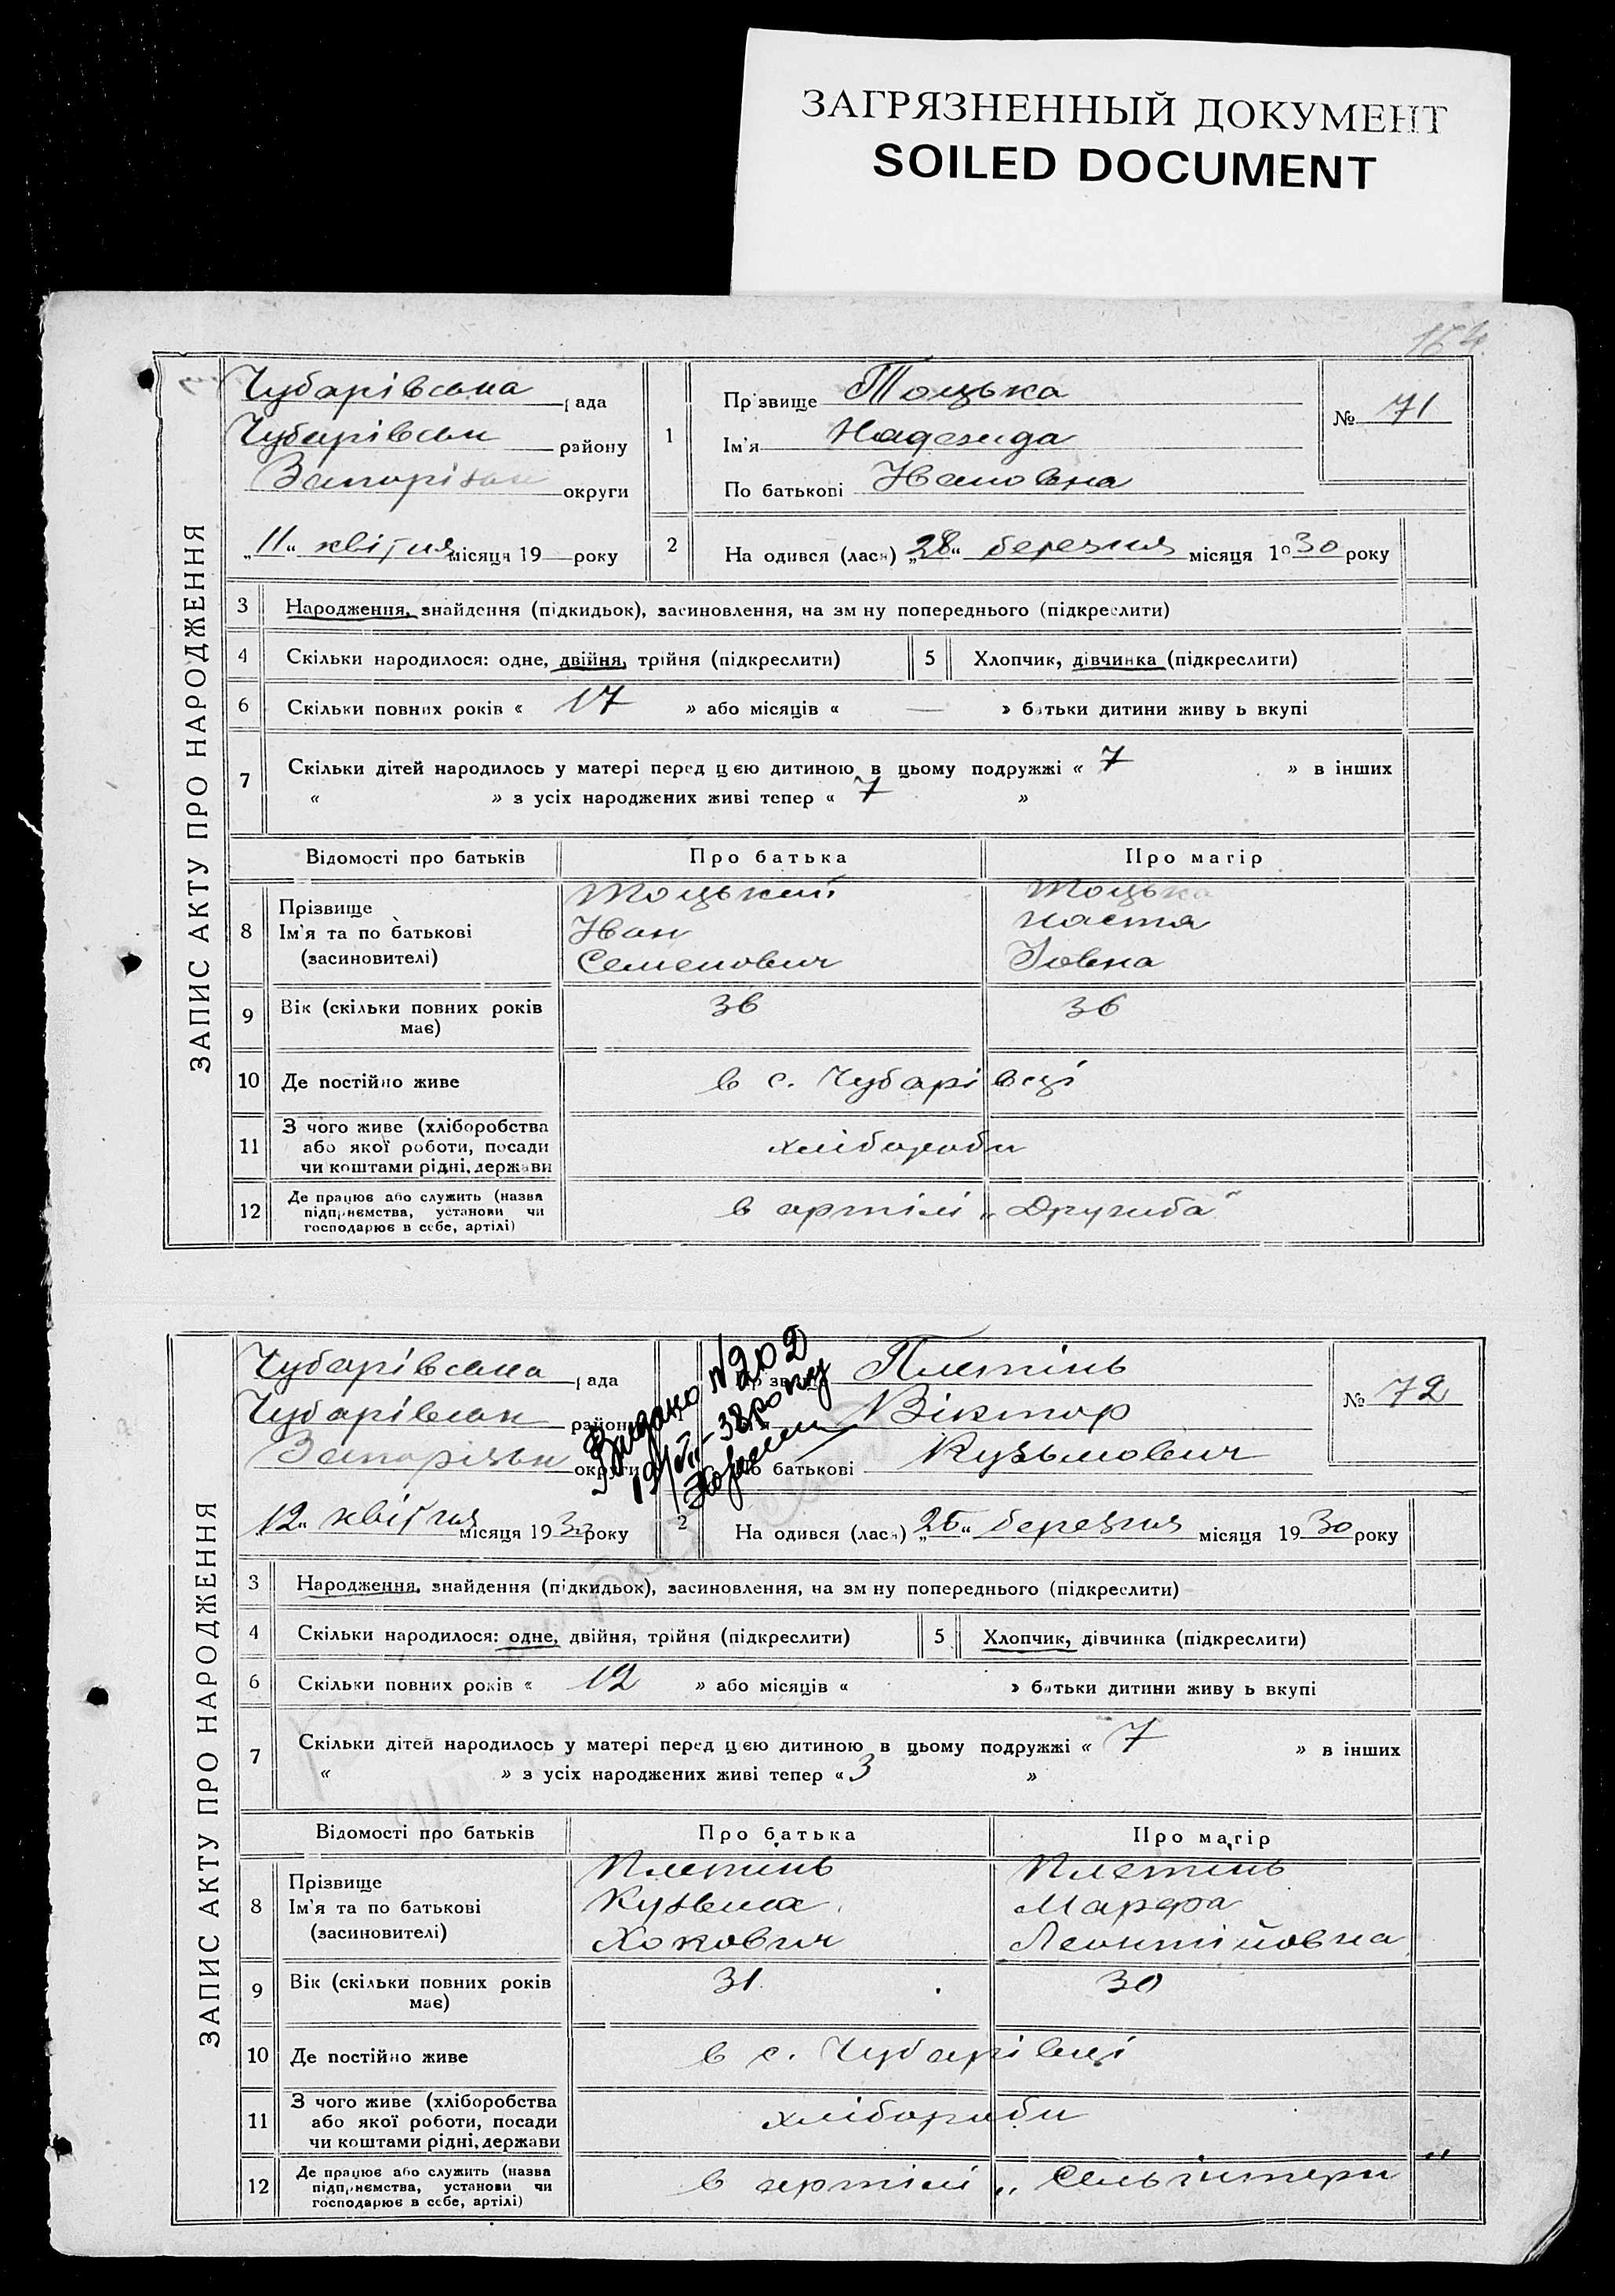 ЗАГРЯЗНЕННЫЙ ДОКУМЕНТ
SOILED DOCUMENT
164
ЗАПИС АКТУ ПРО НАРОДЖЕННЯ
Чубарівська рада
Чубарівськ району
Запорізьк округи
„11“ квітня місяця 19 року
1
Прізвище Тоцька
Ім'я Надежида
По батькові Івановна
№ 71
2
На одився (лася) „28“ березня місяця 1930 року
3 Народження, знайдення (підкидьок), засиновлення, на зм ну попереднього (підкреслити)
4 Скільки народилося: одне, двійня, трійня (підкреслити) 5 Хлопчик, дівчинка (підкреслити)
6 Скільки повних років « 17 » або місяців « — » батьки дитини живу ь вкупі
7 Скільки дітей народилось у матері перед цією дитиною в цьому подружжі « 7 » в інших
« » з усіх народжених живі тепер « 7 »
Відомості про батьків Про батька Про матір
8 Прізвище Тоцький Тоцька
Ім'я та по батькові Іван Настя
(засиновителі) Семенович Іовна
9 Вік (скільки повних років має) 36 36
10 Де постійно живе в с. Чубарівці
11 З чого живе (хліборобства або якої роботи, посади чи коштами рідні, держави хлібороби
12 Де працює або служить (назва підприємства, установи чи господарює в себе, артілі) в артілі „Дружба“
ЗАПИС АКТУ ПРО НАРОДЖЕННЯ
Чубарівська рада
Чубарівськ району
Запорізьк округи
12“ квітня місяця 1930 року
Видано № 202
19/VII-38 року
Прізвище Плетінь
Віктор
По батькові Кузьмович
№ 72
2
На одився (лася) „26“ березня місяця 1930 року
3 Народження, знайдення (підкидьок), засиновлення, на зм ну попереднього (підкреслити)
4 Скільки народилося: одне, двійня, трійня (підкреслити) 5 Хлопчик, дівчинка (підкреслити)
6 Скільки повних років « 12 » або місяців « » батьки дитини живу ь вкупі
7 Скільки дітей народилось у матері перед цією дитиною в цьому подружжі « 7 » в інших
« » з усіх народжених живі тепер « 3 »
Відомості про батьків Про батька Про матір
8 Прізвище Плетінь Плетінь
Ім'я та по батькові Кузьма Марфа
(засиновителі) Хокович Леонтійовна
9 Вік (скільки повних років має) 31 30
10 Де постійно живе в с. Чубарівці
11 З чого живе (хліборобства або якої роботи, посади чи коштами рідні, держави хлібороби
12 Де працює або служить (назва підприємства, установи чи господарює в себе, артілі) в артілі „